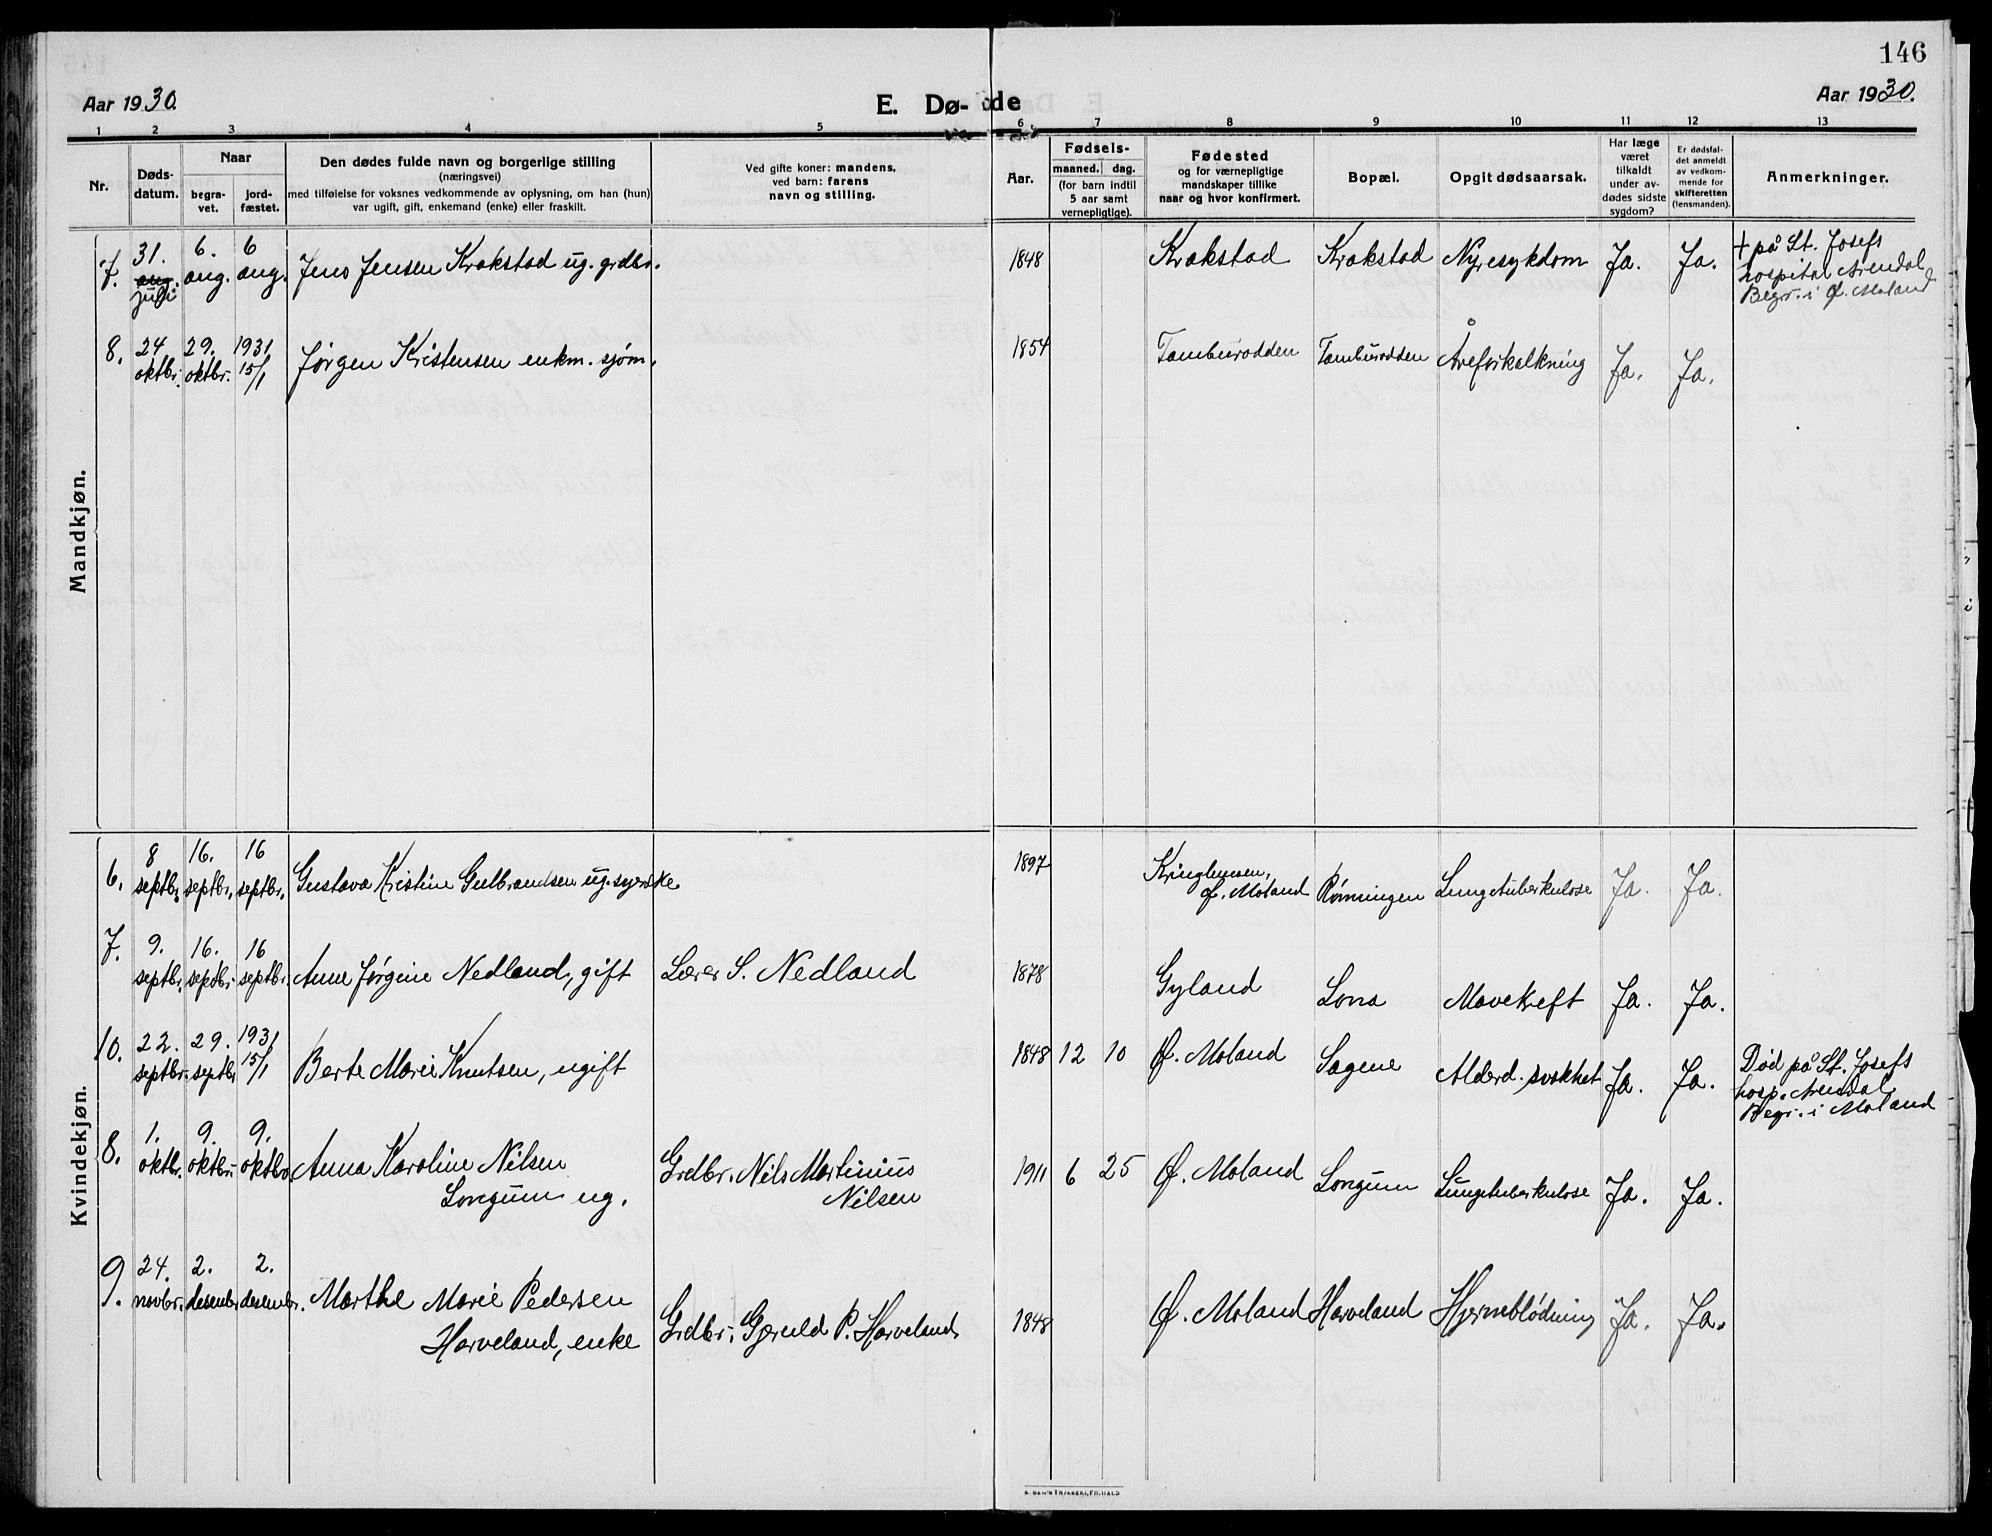 146
Aar 1930.
E. Dø-
de
Aar 1930.
1 2 3 4 5 6 7 8 9 10 11 12 13
Nr.
Døds-
datum.
Naar
begra-
vet.
jord-
fæstet.
Den dødes fulde navn og borgerlige stilling
(næringsvei)
med tilføielse for voksnes vedkommende av oplysning, om han (hun)
var ugift, gift, enkemand (enke) eller fraskilt.
Ved gifte koner: mandens,
ved barn: farens
navn og stilling.
Aar.
Fødsels-
maaned. dag.
(for barn indtil
5 aar samt
vernepligtige).
Fødested
og for værnepligtige
mandskaper tillike
naar og hvor konfirmert.
Bopæl.
Opgit dødsaarsak.
Har læge
været
tilkaldt
under av-
dødes sidste
sygdom?
Er dødsfal-
det anmeldt
av vedkom-
mende for
skifteretten
(lensmanden).
Anmerkninger.
Mandkjøn.
7.
31.
aug.
juli
6.
aug.
6
aug.
Jens Jensen Krokstad ug. grdbr.
1848
Krokstad
Krokstad
Nyresykdom
Ja.
Ja.
+ på St. Josefs
hospital Arendal
Begr. i Ø. Moland
8.
24
oktbr.
29.
oktbr.
1931
15/1
Jørgen Kristensen enkm. sjøm.
1854
Tamburodden
Tamburodden
Åreforkalkning
Ja.
Ja.
Kvindekjøn.
6.
8
septbr.
16.
septbr.
16
septbr.
Gustava Kristine Gulbrandsen ug. syerske
1897
Ø. Moland
Rønningen
Lungetuberkulose
Ja.
Ja.
7.
9.
septbr.
16.
septbr.
16
septbr.
Anne Jørgine Nedland, gift
Lærer S. Nedland
1878
Gyland
Lona
Mavekreft
Ja.
Ja.
10.
22.
septbr.
29.
septbr
1931
15/1
Berte Marie Knutsen, ugift
1848 12 10
Ø. Moland
Sagene
Alderd. svekket
Ja.
Ja.
Død på St. Josefs
hosp. Arendal
Begr. i Moland
8.
1.
oktbr.
9.
oktbr.
9.
oktbr.
Anna Karoline Nilsen
Longum ug.
Grdbr. Nils Martinius
Nilsen
1911 6 25
Ø. Moland
Longum
Lungetuberkulose
Ja.
Ja.
9.
24.
novbr.
2.
desenbr
2.
desenbr.
Marthe Marie Pedersen
Harveland, enke
Grdbr. Gjeruld P. Harveland,
1848
Ø. Moland
Harveland
Hjerneblødning
Ja.
Ja.